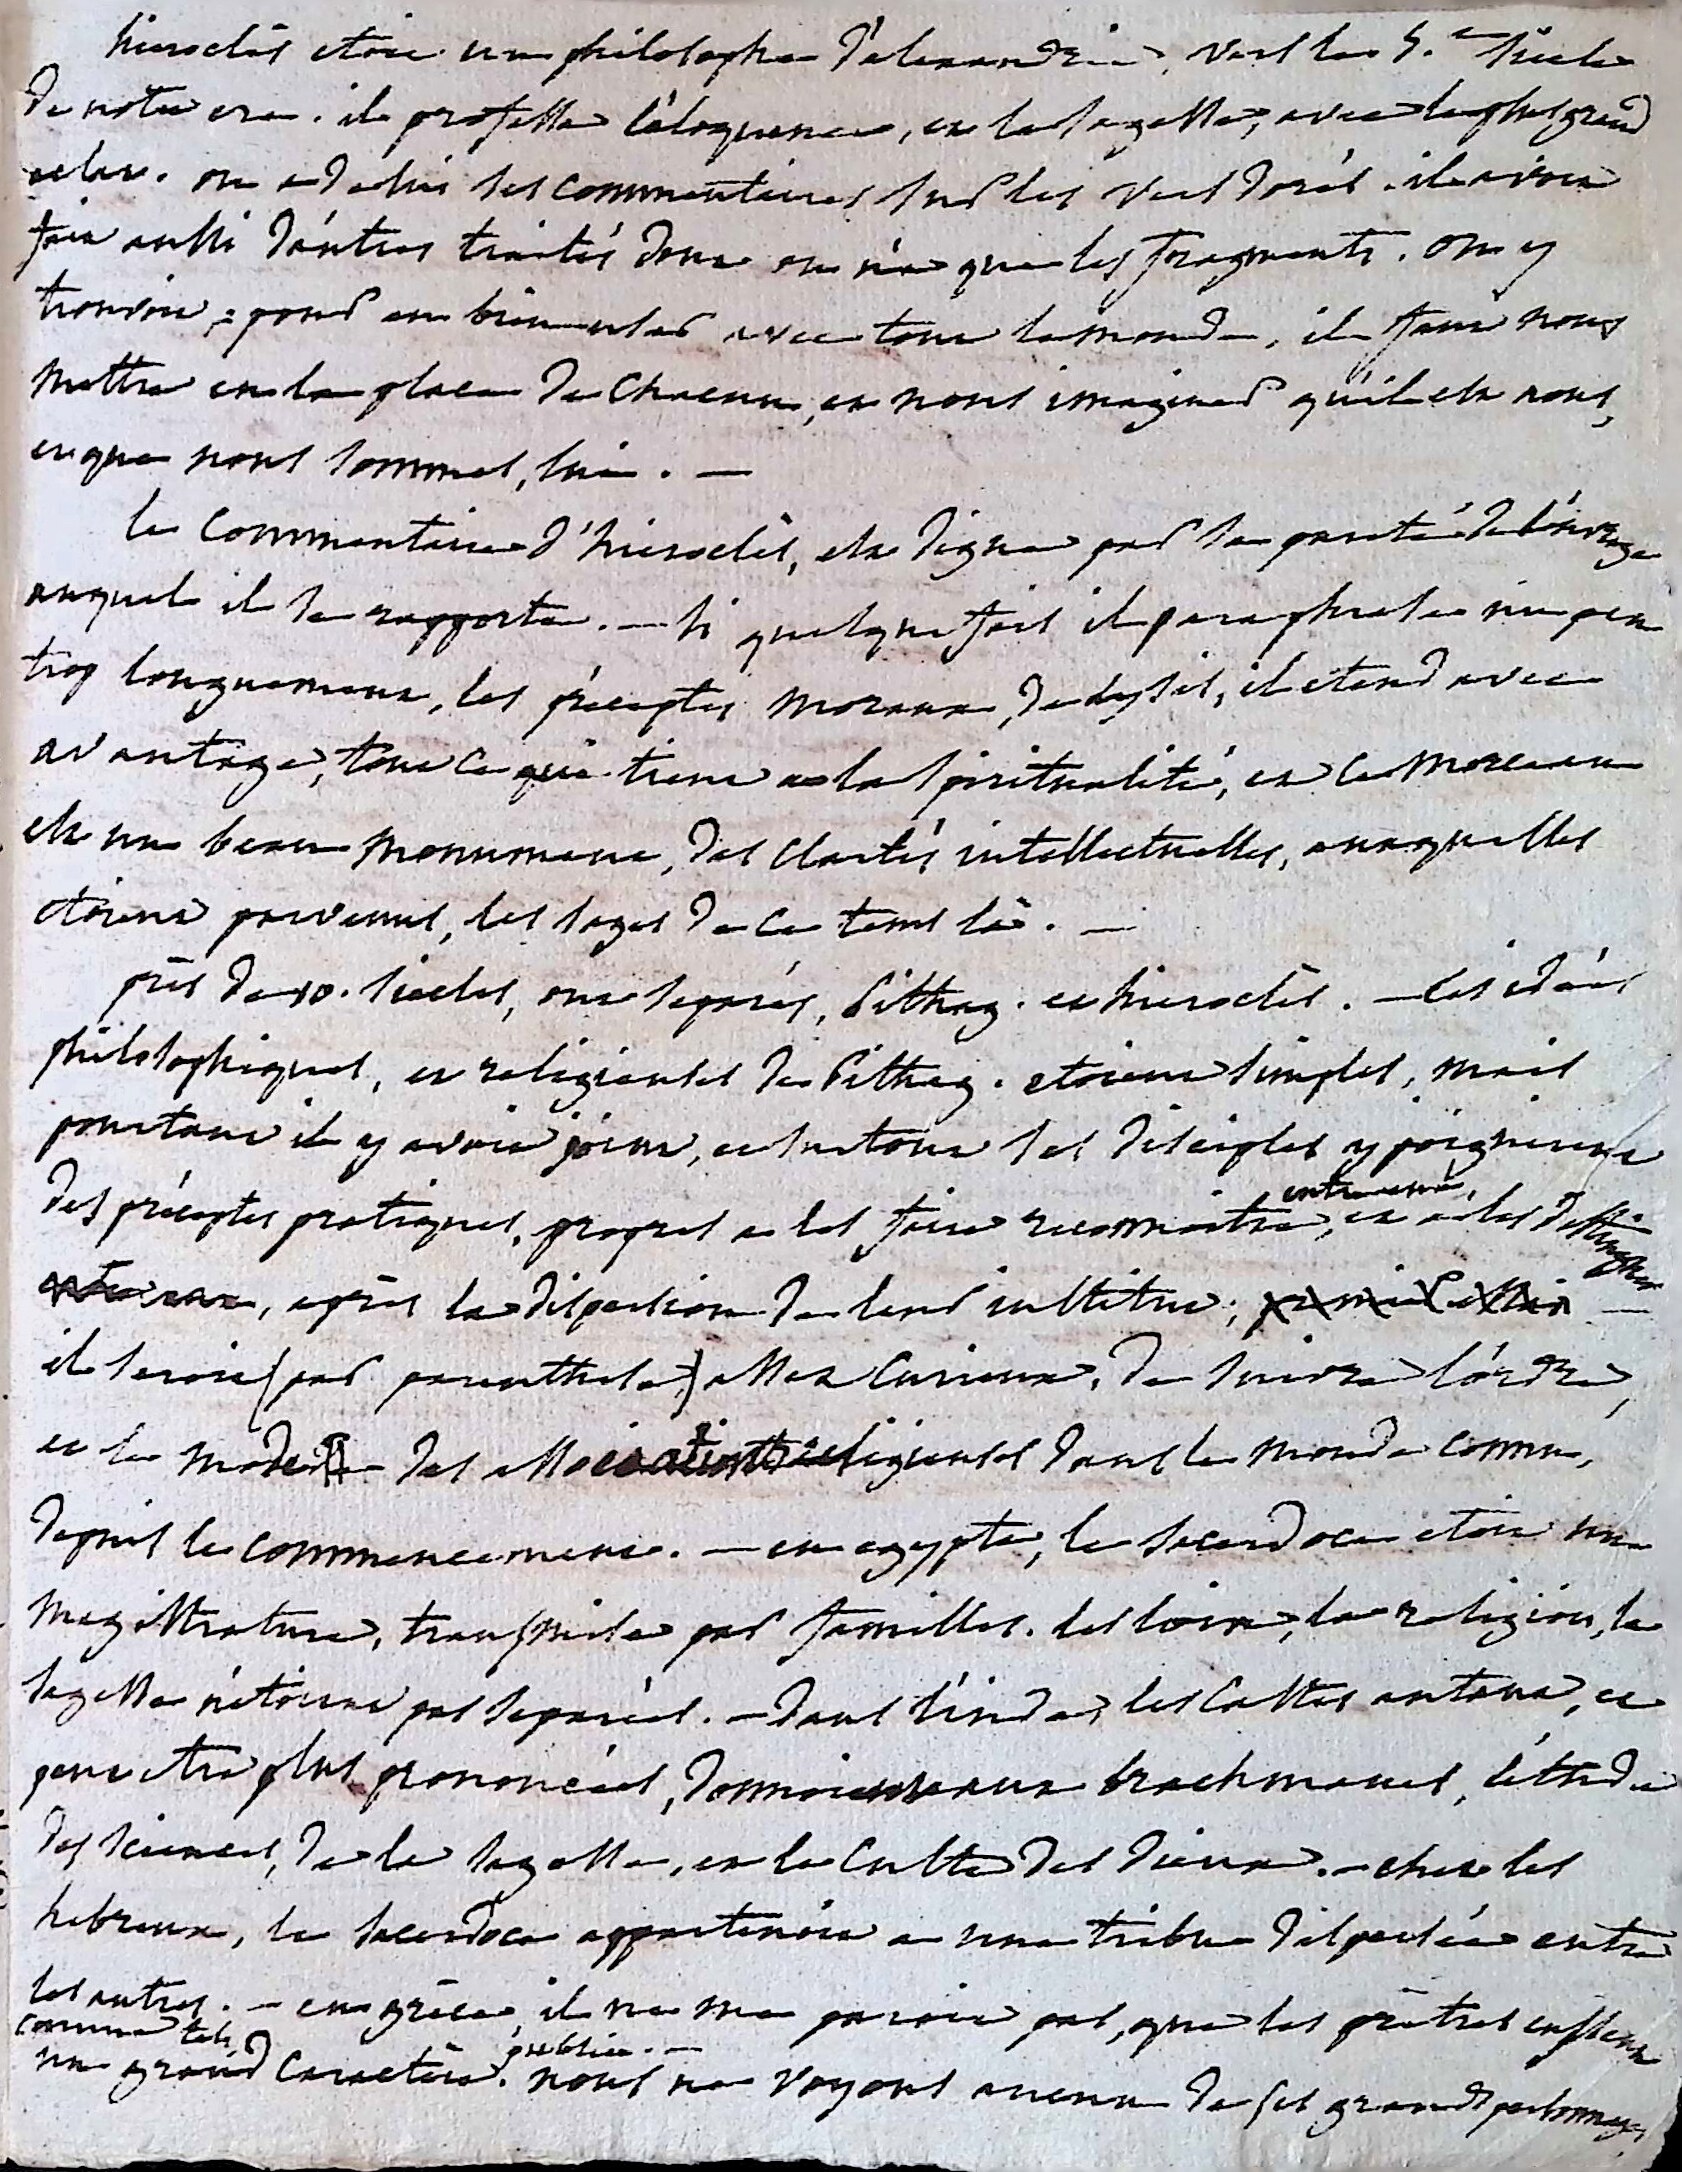 hieroclès etoit un philosophe d'alexandrie, vers le 5.e siecle
de notre ere. il professa l'éloquence, et la sagesse, avec le plus grand
eclat. on a de lui ses commentaires sur les vers dorés. il avoit
fait aussi d'autres traités dont on n'a que les fragments. on y
trouvoit, : pour en bien user avec tout le monde, il faut nous
mettre en la place de chacun, et nous imaginer qu'il est nous,
et que nous sommes, lui. —
le commentaire d'hieroclès, est digne par sa pureté de l'ouvrage
auquel il se rapporte. — si quelquefois il paraphrase un peu
trop longuement, les préceptes moraux, de lysis, il etend avec
avantage, tout ce qui tient a la spiritualité, et ce morceau
est un beau monument, des clartés intellectuelles, auxquelles
etoient parvenus, les sages de ce tems là. —
près de 10. siecles, ont separés, Pithag. et hieroclès. — les idées
philosophiques, et religieuses de Pithag. etoient simples, mais
pourtant il y avoit joint, et surtout ses disciples y joignirent
des préceptes pratiques, propres a les faire reconnoitre entre eux, et a les distinguer
, après la dispersion de leur institut; —
il seroit (par parenthese,) assez curieux, de suivre l'ordre,
et le mode des associations religieuses dans le monde connu,
depuis le commencement. — en egypte, le sacerdoce etoit une
magistrature, transmise par familles. les loix, la religion, la
sagesse n'etoient pas separées. — dans l'inde, les castes autant, et
peut etre plus prononcées, donnoient aux brachmanes, l'étude
des sciences, de la sagesse, et le culte des dieux. — chez les
hebreux, le sacerdoce appartenoit a une tribu dispersée entre
les autres. — en grèce, il ne me paroit pas, que les prêtres eussent
comme tels, un grand caractère public. — nous ne voyons aucun de ces grands personnages,